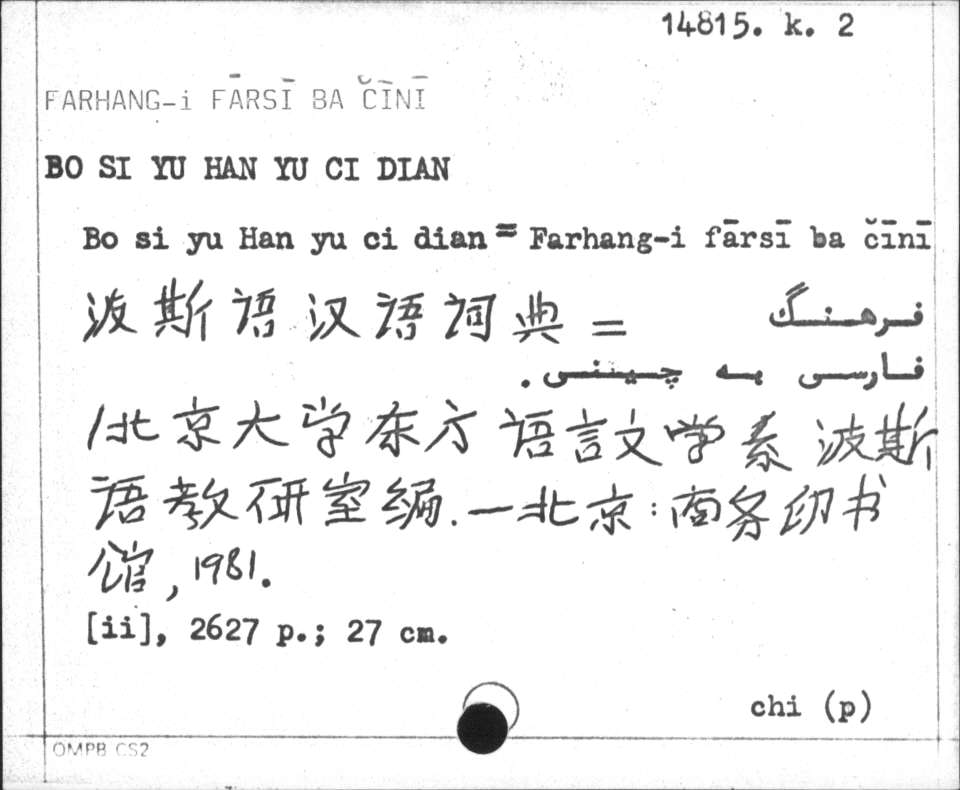 14815. k. 2
FARHANG-i FĀRSĪ BA ČĪNĪ
BO SI YU HAN YU CI DIAN
Bo si yu Han yu ci dian = Farhang-i fārsī ba čīnī
波斯语汉语词典 = فرهنگ
فارسی به چینی.
/北京大学东方语言文学系波斯
语教研室编.—北京:商务印书
馆, 1981.
[ii], 2627 p.; 27 cm.
chi (p)
OMPB CS2